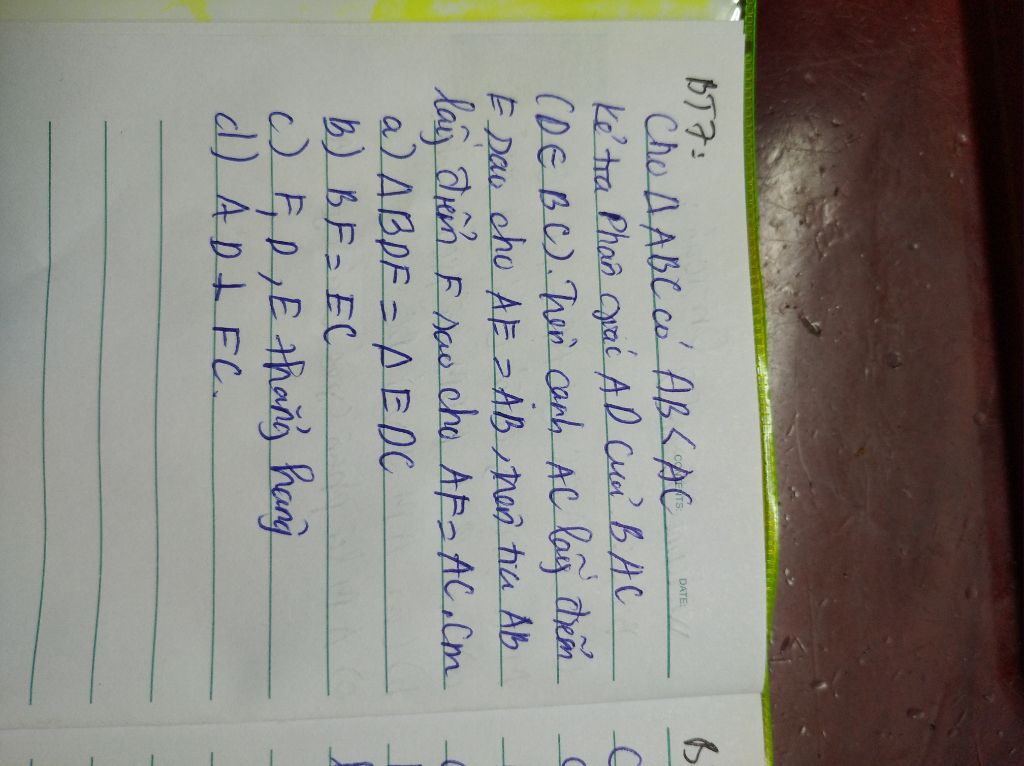 BT7:
Cho Δ ABC có AB < AC
Kẻ tia Phân giác AD của BAC
(D ∈ BC). Trên cạnh AC lấy điểm
E sao cho AE = AB, trên tia AB
lấy điểm F sao cho AF = AC. Cm
a) Δ BDF = Δ EDC
b) BF = EC
c) F, D, E thẳng hàng
d) AD ⊥ FC.
CONTENTS:
DATE: / /
B